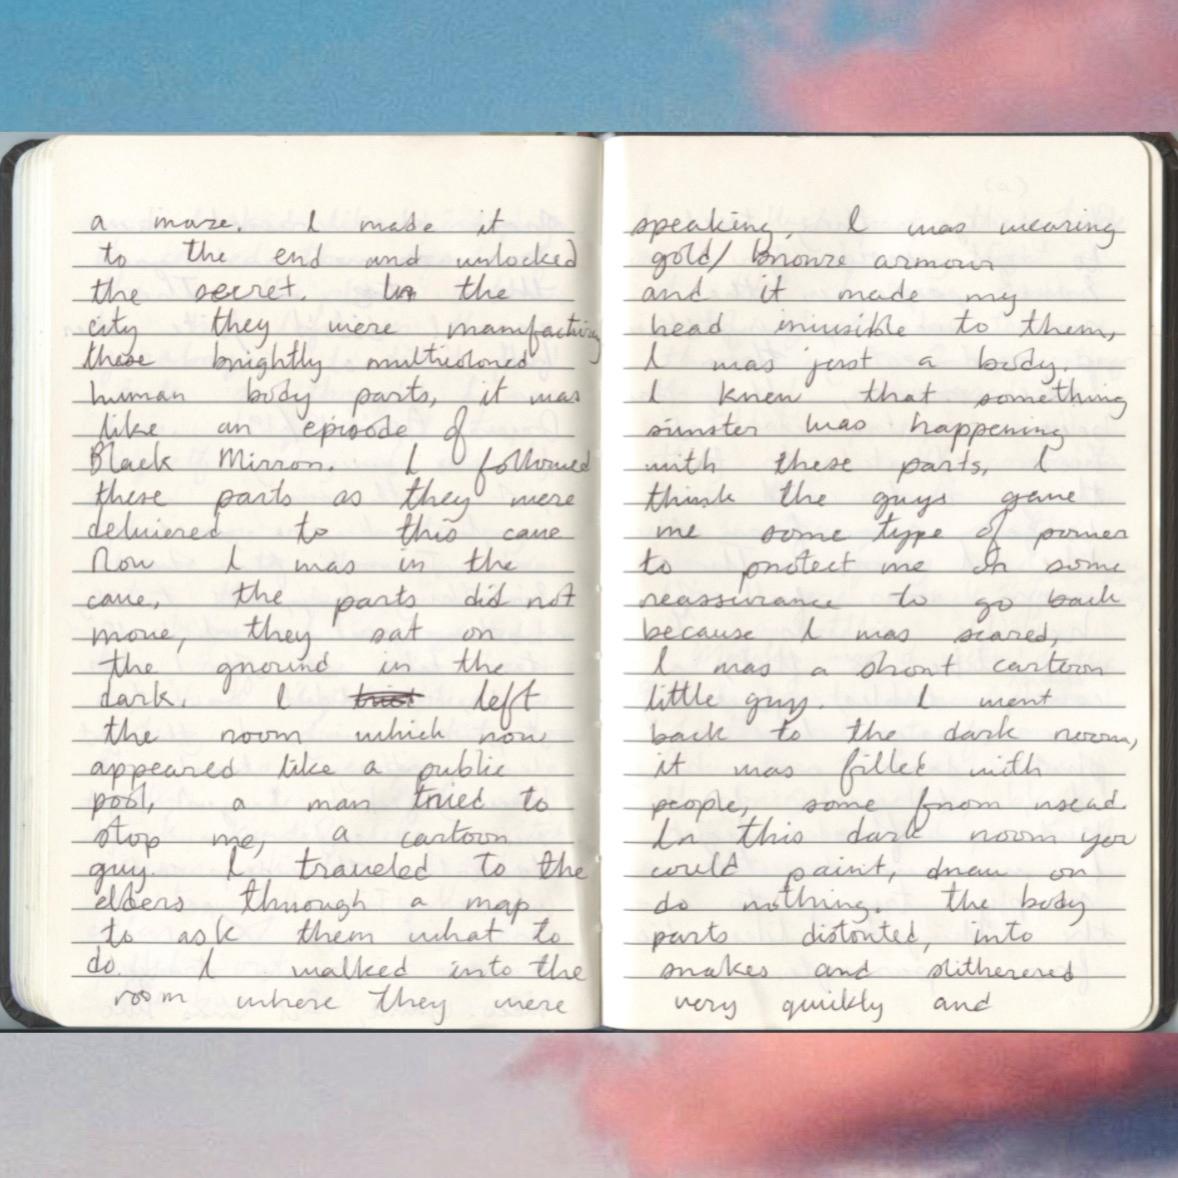 a maze. I made it
to the end and unlocked
the secret. In the
city they were manufacting
these brightly multicolored
human body parts, it was
like an episode of
Black Mirror. I followed
these parts as they were
delivered to this cave
Now I was in the
cave, the parts did not
move, they sat on
the ground in the
dark. I left
the room which now
appeared like a public
pool, a man tried to
stop me, a cartoon
guy. I traveled to the
elders through a map
to ask them what to
do. I walked into the
room where they were
speaking, I was wearing
gold/bronze armour
and it made my
head invisible to them,
I was just a body.
I knew that something
sinister was happening
with these parts, I
think the guys gave
me some type of power
to protect me or some
reassurance to go back
because I was scared,
I was a short cartoon
little guy. I went
back to the dark room,
it was filled with
people, some from usead.
In this dark room you
could paint, draw or
do nothing. the body
parts distorted, into
snakes and slitherered
very quikly and